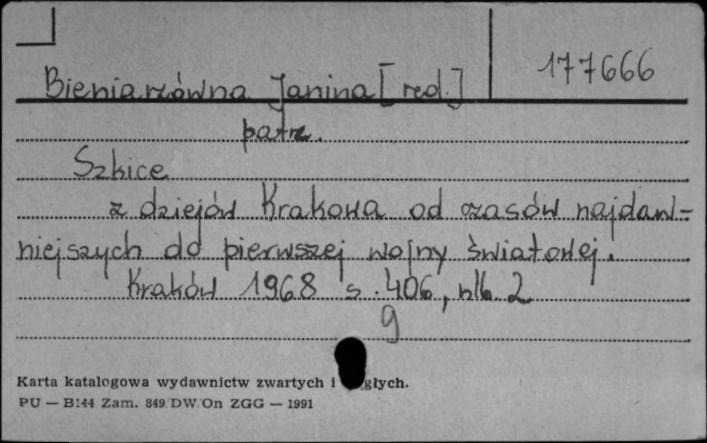 177666
Bieniarzówna Janina [red.]
patrz.
Szkice
z dziejów Krakowa od czasów najdaw-
niejszych do pierwszej wojny światowej.
Kraków 1968 s. 406, nlb. 2
9
Karta katalogowa wydawnictw zwartych i głych.
PU — B144 Zam. 849 DW On ZGG — 1991